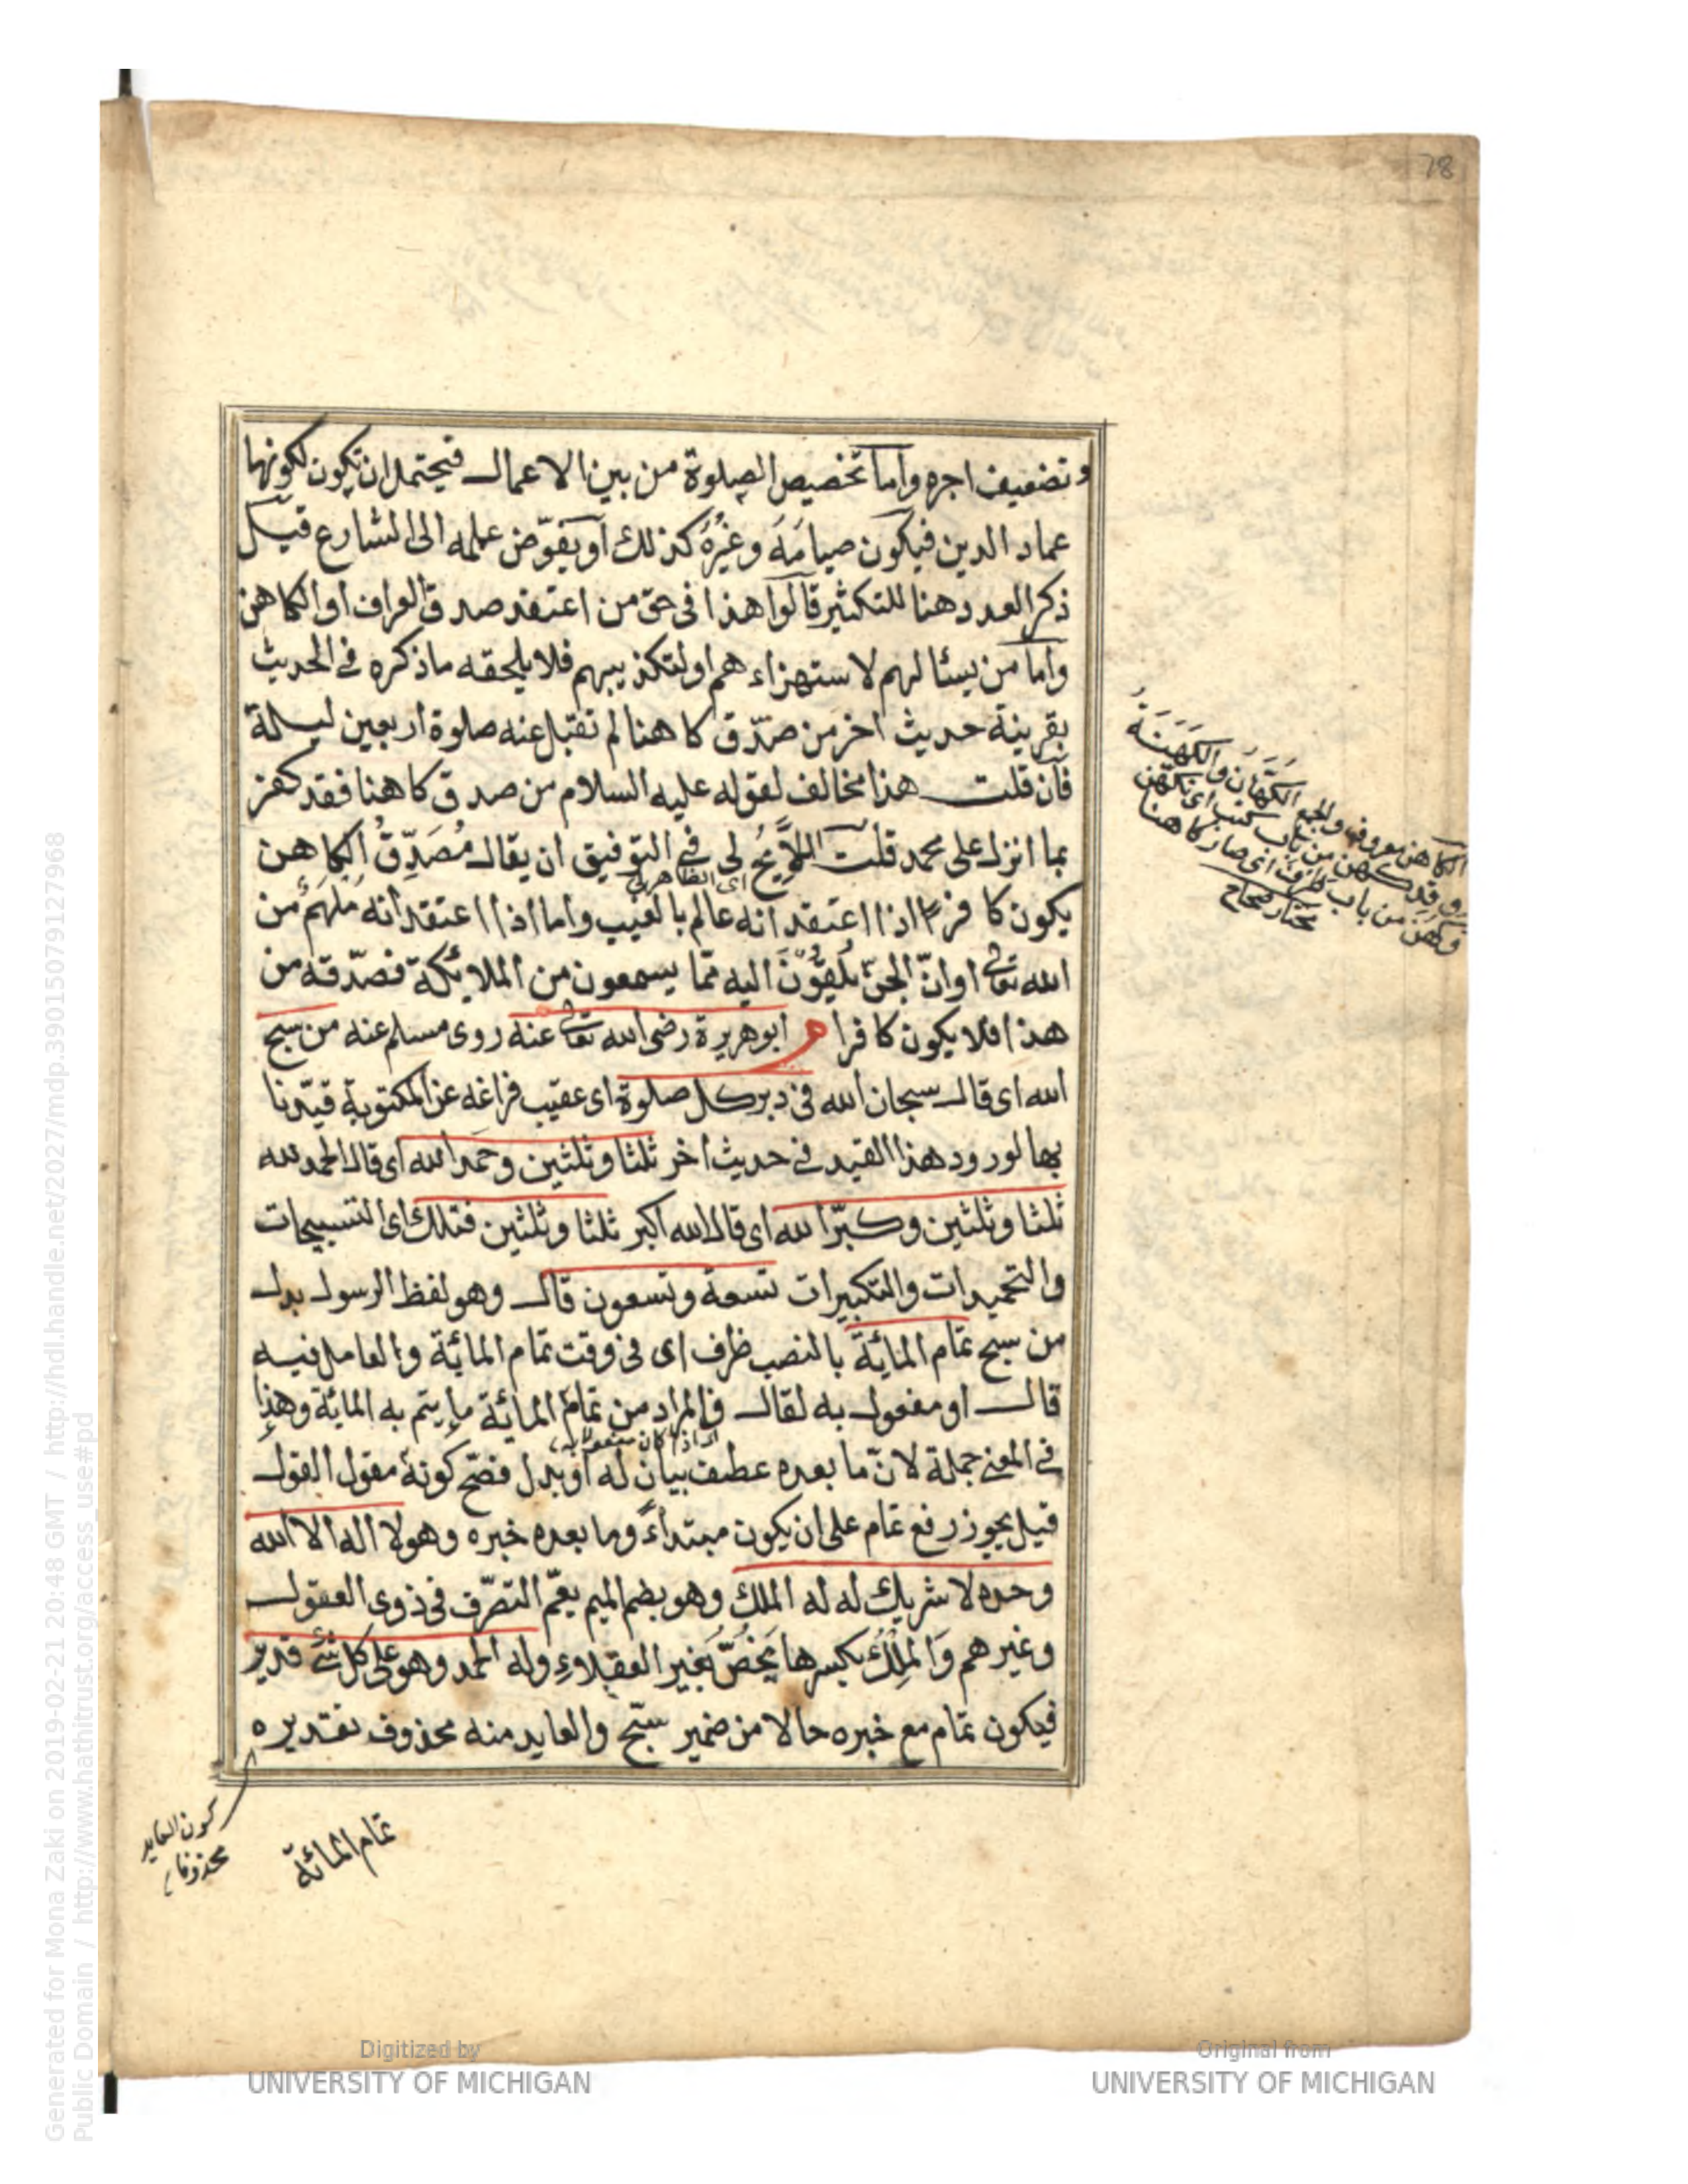 78
وتضعيف اجره وأما تخصيص الصلوة من بين الاعمال فيحتمل ان تكون لكونها
عماد الدين فيكون صيامَهُ وغيرُه كذلك او يفوّض علمه الى الشارع قيل
ذكر العدد هنا للتكثير قالوا هذا فى حق من اعتقد صدق العراف او الكاهن
وأما من يسئالهم لاستهزاءهم او لتكذيبهم فلا يلحقه ما ذكره فى الحديث
بقرينة حديث اخر من صدّق كاهنا لم تقبل عنه صلوة اربعين ليلة
فأن قلت هذا مخالف لقوله عليه السلام من صدق كاهنا فقد كفر
بما انزل على محمد قلت اللايح لى فى التوفيق ان يقال مُصَدِّقُ الكاهن
اى الظاهر لى
يكون كافرا اذا اعتقد انه عالم بالغيب واما اذا اعتقد انه مُلهَم من
الله تعالى او انّ الجنّ يُلقُونَ اليه ممّا يسمعون من الملائكة فصدّقه من
هذا فلا يكون كافرا م ابو هريرة رضى الله تعالى عنه روى مسلم عنه من سبح
الله اى قال سبحان الله فى دبر كل صلوة اى عقيب فراغه عن المكتوبة قيّدنا
بها لورود هذا القيد فى حديث اخر ثلثا وثلثين وحَمِدَ الله اى قال الحمد لله
ثلثا وثلثين وكبّر الله اى قال الله اكبر ثلثا وثلثين فتلك اى التسبيحات
والتحميدات والتكبيرات تسعة وتسعون قال وهو لفظ الرسول بدل
من سبح تمام المائة بالنصب ظرف اى فى وقت تمام المائة والعامل فيه
قال او مفعول به لقال فالمراد من تمام المائة ما يتم به المائة وهذا
اى اذا كان مفعولا به
فى المعنى جملة لانّ ما بعده عطف بيان له او بدل فصح كونه مقول القول
قيل يجوز رفع تمام على ان يكون مبتداءً وما بعده خبره وهو لا اله الا الله
وحده لا شريك له له الملك وهو بضم الميم يعمّ التصرّف فى ذوى العقول
وغيرهم وَالمِلْكُ بكسرها يَخُصّ بغير العقلاء وله الحمد وهو على كل شئ قدير
فيكون تمام مع خبره حالا من ضمير سبّح والعايد منه محذوف تقديره
الكاهن معروف والجمع الكُهَّان والكَهَنَةُ
وقد كهن من باب كتب اى تكهّن
وكهُن من باب ظرف اى صار كاهنا
مختار صحاح
كون العايد
محذوفا
تمام المائة
Generated for Mona Zaki on 2019-02-21 20:48 GMT / http://hdl.handle.net/2027/mdp.39015079127968
Public Domain / http://www.hathitrust.org/access_use#pd
Digitized by
UNIVERSITY OF MICHIGAN
Original from
UNIVERSITY OF MICHIGAN